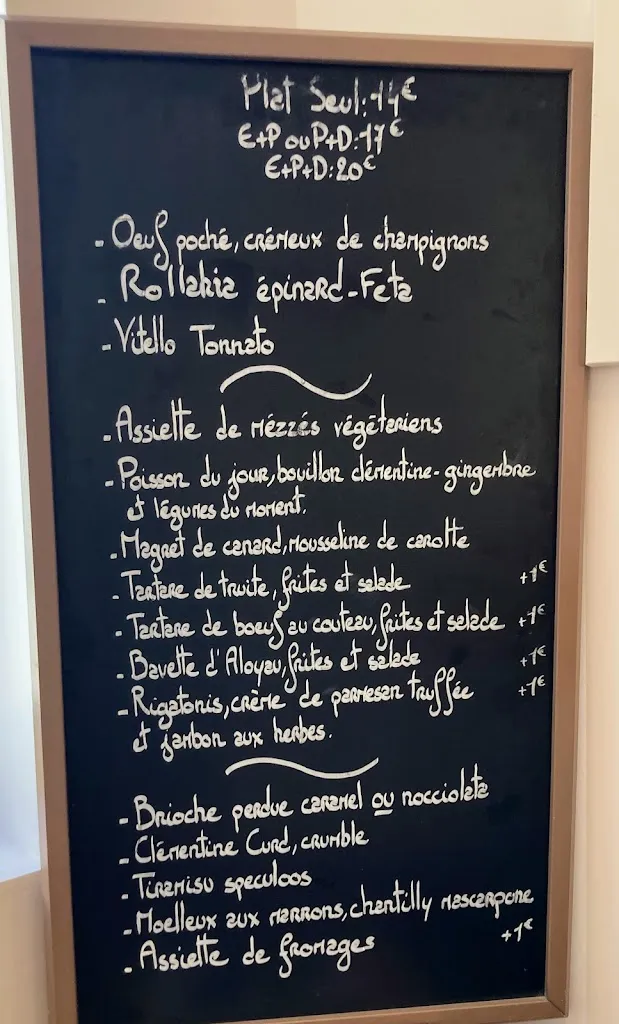 Plat Seul: 14€
E+P ou P+D: 17€
E+P+D: 20€
- Oeuf poché, crémeux de champignons
- Rollakia épinard-Feta
- Vitello Tonnato
- Assiette de mézzés végétariens
- Poisson du jour, bouillon clémentine-gingembre
et légumes du moment.
- Magret de canard, mousseline de carotte
- Tartare de truite, frites et salade +1€
- Tartare de boeuf au couteau, frites et salade +1€
- Bavette d'Aloyau, frites et salade +1€
- Rigatonis, crème de parmesan truffée +1€
et jambon aux herbes.
- Brioche perdue caramel ou nocciolata
- Clémentine Curd, crumble
- Tiramisu speculoos
- Moelleux aux marrons, chantilly mascarpone
- Assiette de fromages +1€